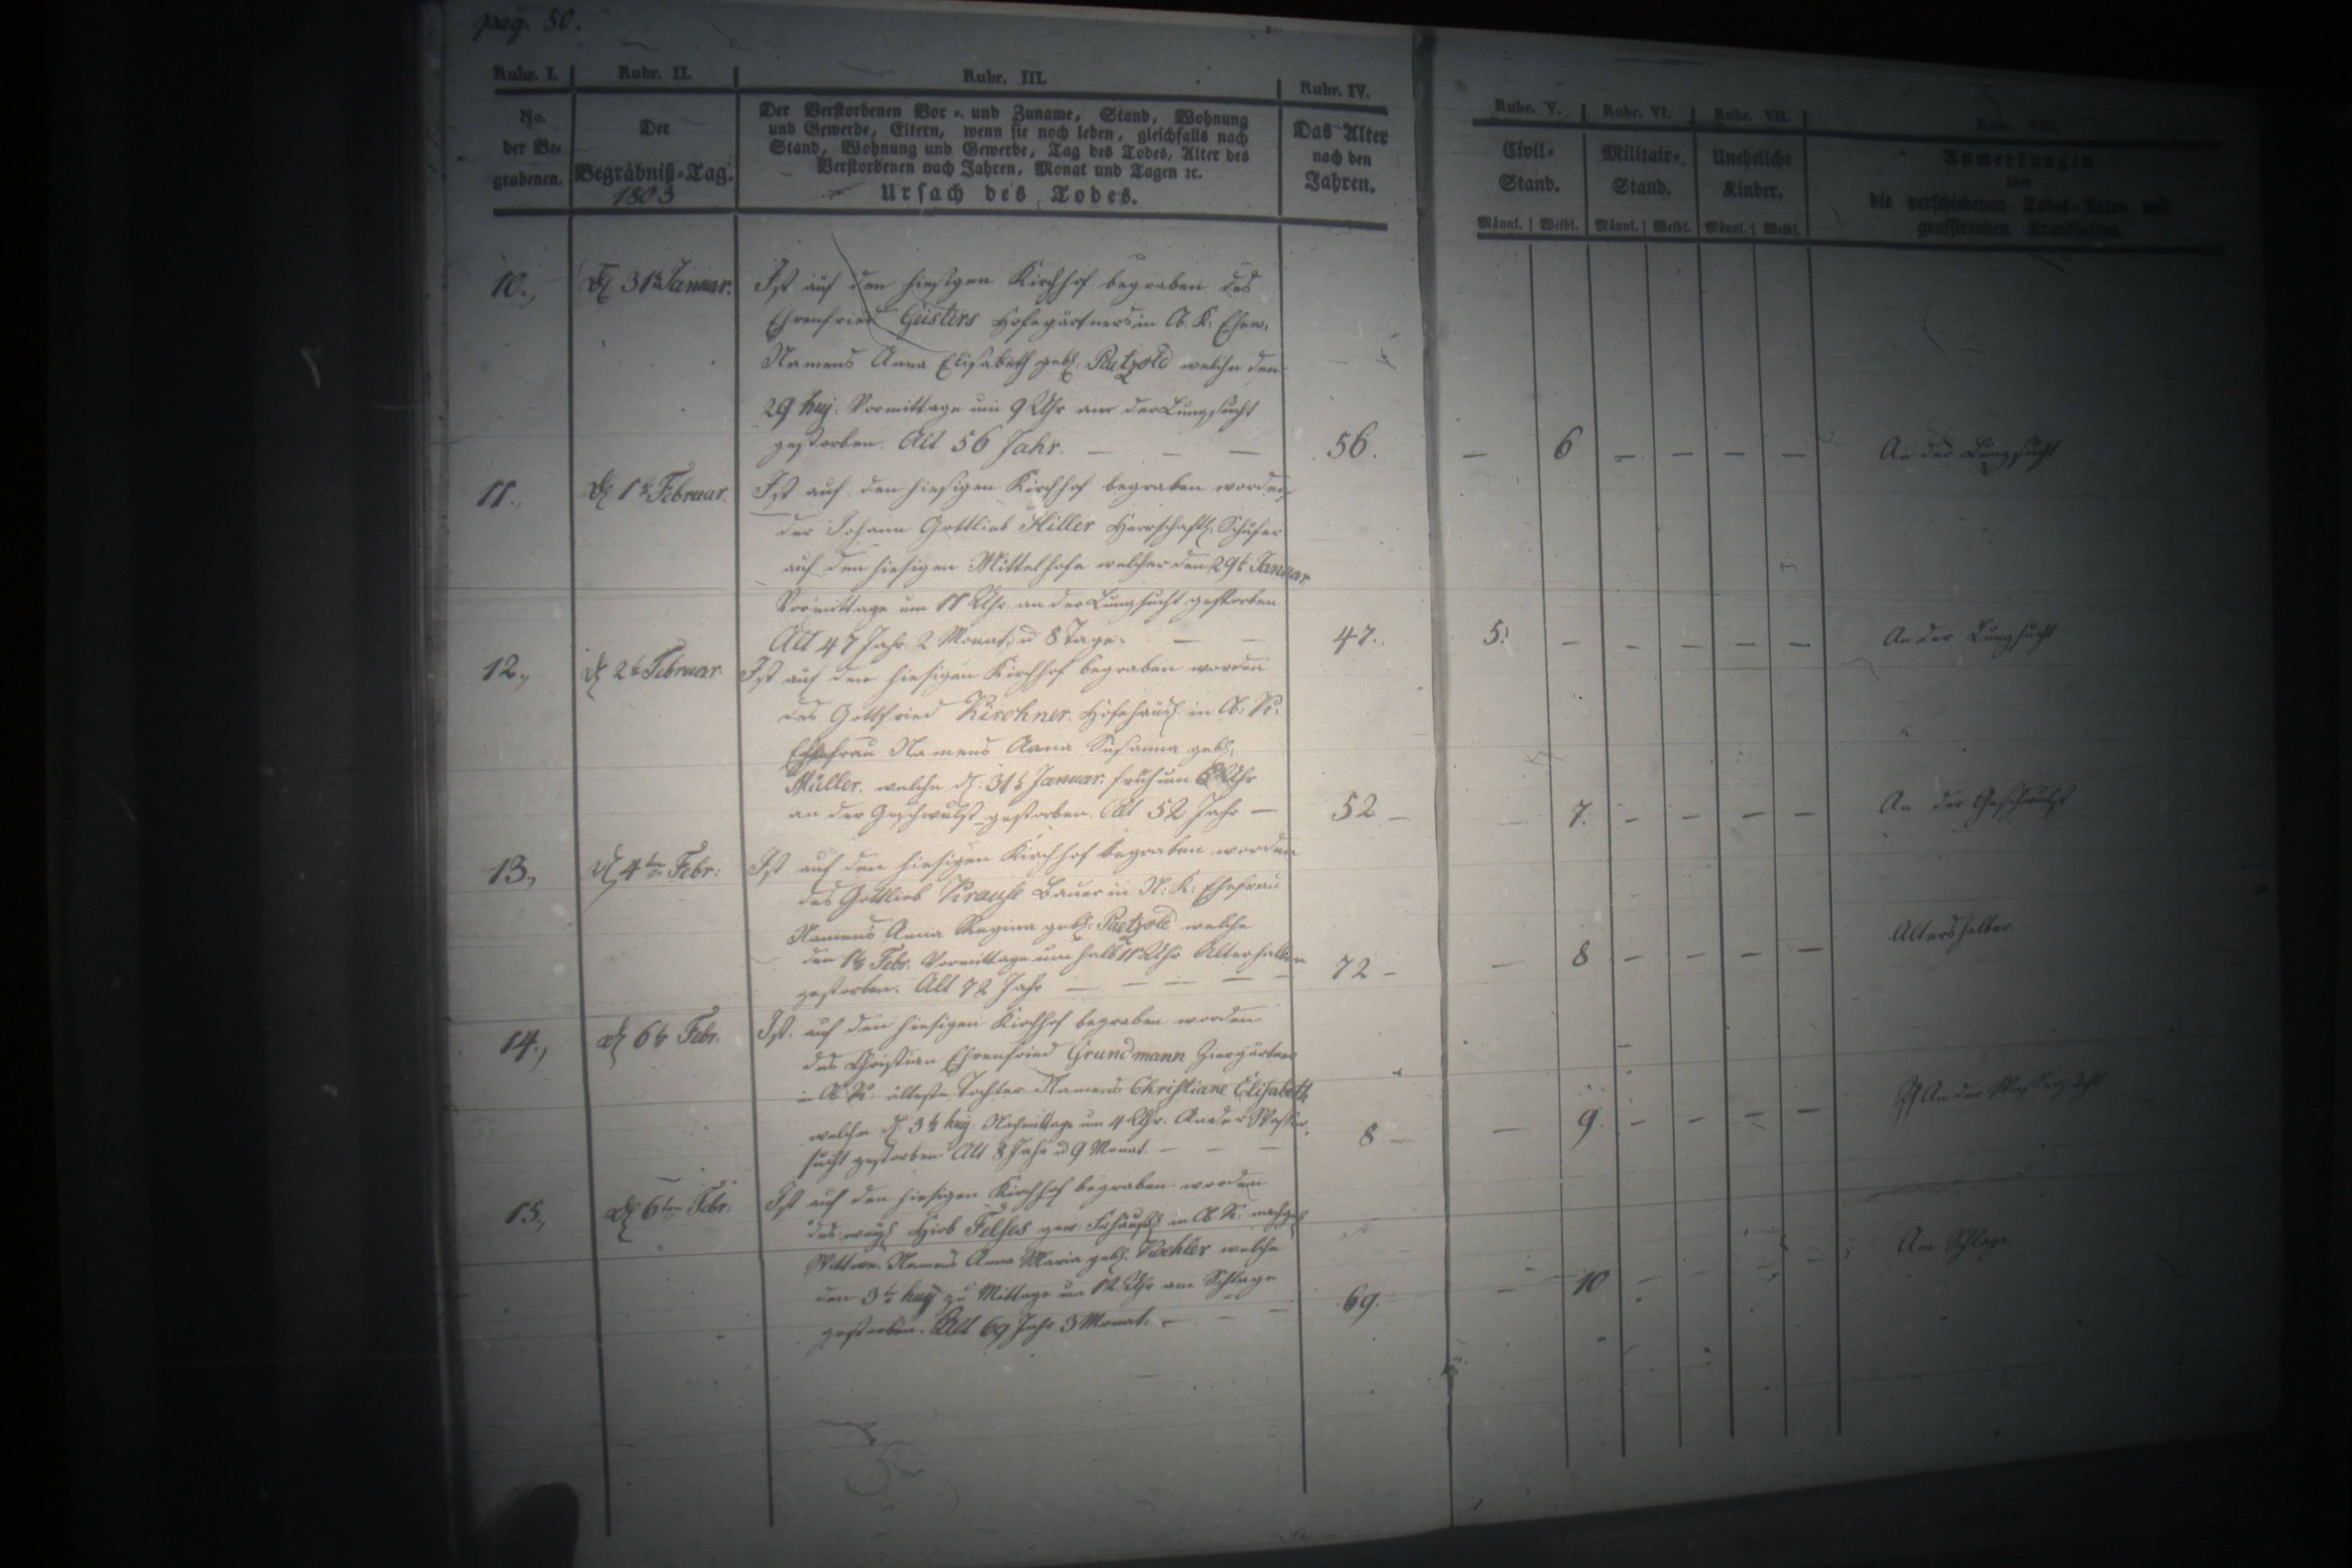 pag. 50.
Rubr. I. Rubr. II. Rubr. III. Rubr. IV. Rubr. V. Rubr. VI. Rubr. VII. Rubr. VIII.
No. der Be- grabenen.
Der Begräbniß-Tag. 1803
Der Verstorbenen Vor- und Zuname, Stand, Wohnung
und Gewerbe, Eltern, wenn sie noch leben, gleichfalls nach
Stand, Wohnung und Gewerbe, Tag des Todes, Alter des
Verstorbenen nach Jahren, Monat und Tagen ꝛc.
Ursach des Todes.
Das Alter
nach den
Jahren.
Civil-
Stand.
Militair-
Stand.
Uneheliche
Kinder.
Anmerkungen
über
die verschiedenen Todes-Arten und
grassirenden Krankheiten.
Männl. Weibl. Männl. Weibl. Männl. Weibl.
10., d 31t Januar. Ist auf den hiesigen Kirchhof begraben des
Ehrenfried Geisters Hofegärtners in O. K. Ehew.
Namens Anna Elisabeth geb. Paetzold welche den
29 huj. Vormittags um 9 Uhr an der Lungsucht
gestorben. Alt 56 Jahr. — — — 56. — 6 — — — — An der Lungsucht
11., d 1t Februar. Ist auf den hiesigen Kirchhof begraben worden
der Johann Gottlieb Hiller Herrschaftl. Schäfer
auf den hiesigen Mittelhofe welcher den 29t Januar
Vormittags um 11 Uhr an der Lungsucht gestorben
Alt 47 Jahr 2 Monat u 8 Tage. — — 47. 5. — — — — — An der Lungsucht
12., d 2t Februar. Ist auf den hiesigen Kirchhof begraben worden
des Gottfried Kirchner Hofehäusl. in O. K.
Ehefrau Namens Anna Susanna geb.
Müller. welche d. 31t Januar. früh um 6 Uhr
an der Geschwulst gestorben. Alt 52 Jahr — 52 — — 7. — — — — An der Geschwulst
13, d 4ten Febr: Ist auf den hiesigen Kirchhof begraben worden
des Gottlieb Krause Bauer in N: K: Ehefrau
Namens Anna Regina geb: Paetzold welche
den 1t Febr. Vormittags um halb 11 Uhr Altershalben
gestorben. Alt 72 Jahr — — — — — 72 — — 8 — — — — Altershalber
14., d 6t Febr. Ist auf den hiesigen Kirchhof begraben worden
des Christian Ehrenfried Grundmann
in O. K. älteste Tochter Namens Christiane Elisabeth
welche d. 3t huj. Nachmittags um 4 Uhr. An der Wasser-
sucht gestorben Alt 8 Jahr u 9 Monat. — — — 8 — — 9. — — — — An der Wassersucht
15, d 6ten Febr. Ist auf den hiesigen Kirchhof begraben worden
des Hiob Felses gew. in O. K.
Wittwe. Namens Anna Maria geb. Koehler welche
den 3t huj zu Mittags um 12 Uhr am Schlage
gestorben. Alt 69 Jahr 3 Monat. — — — 69. — 10 — — — — Am Schlage